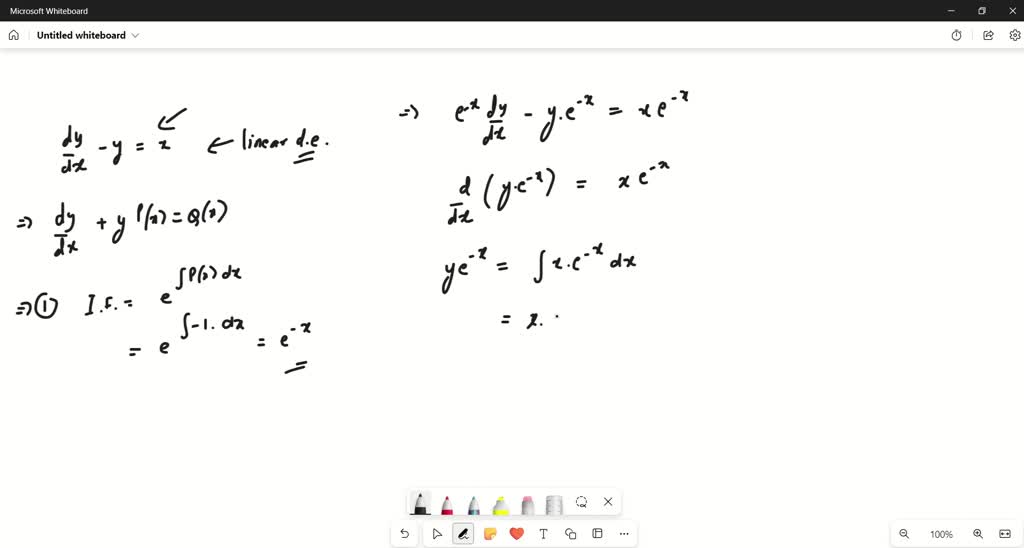 Microsoft Whiteboard
Untitled whiteboard
dy/dx - y = x ← linear d.e.
⇒ dy/dx + y P(x) = Q(x)
⇒ ① I.F. = e^∫P(x) dx
= e^∫-1. dx = e^-x
⇒ e^-x dy/dx - y.e^-x = x e^-x
d/dx (y.e^-x) = x e^-x
ye^-x = ∫ x.e^-x dx
= x.
100%